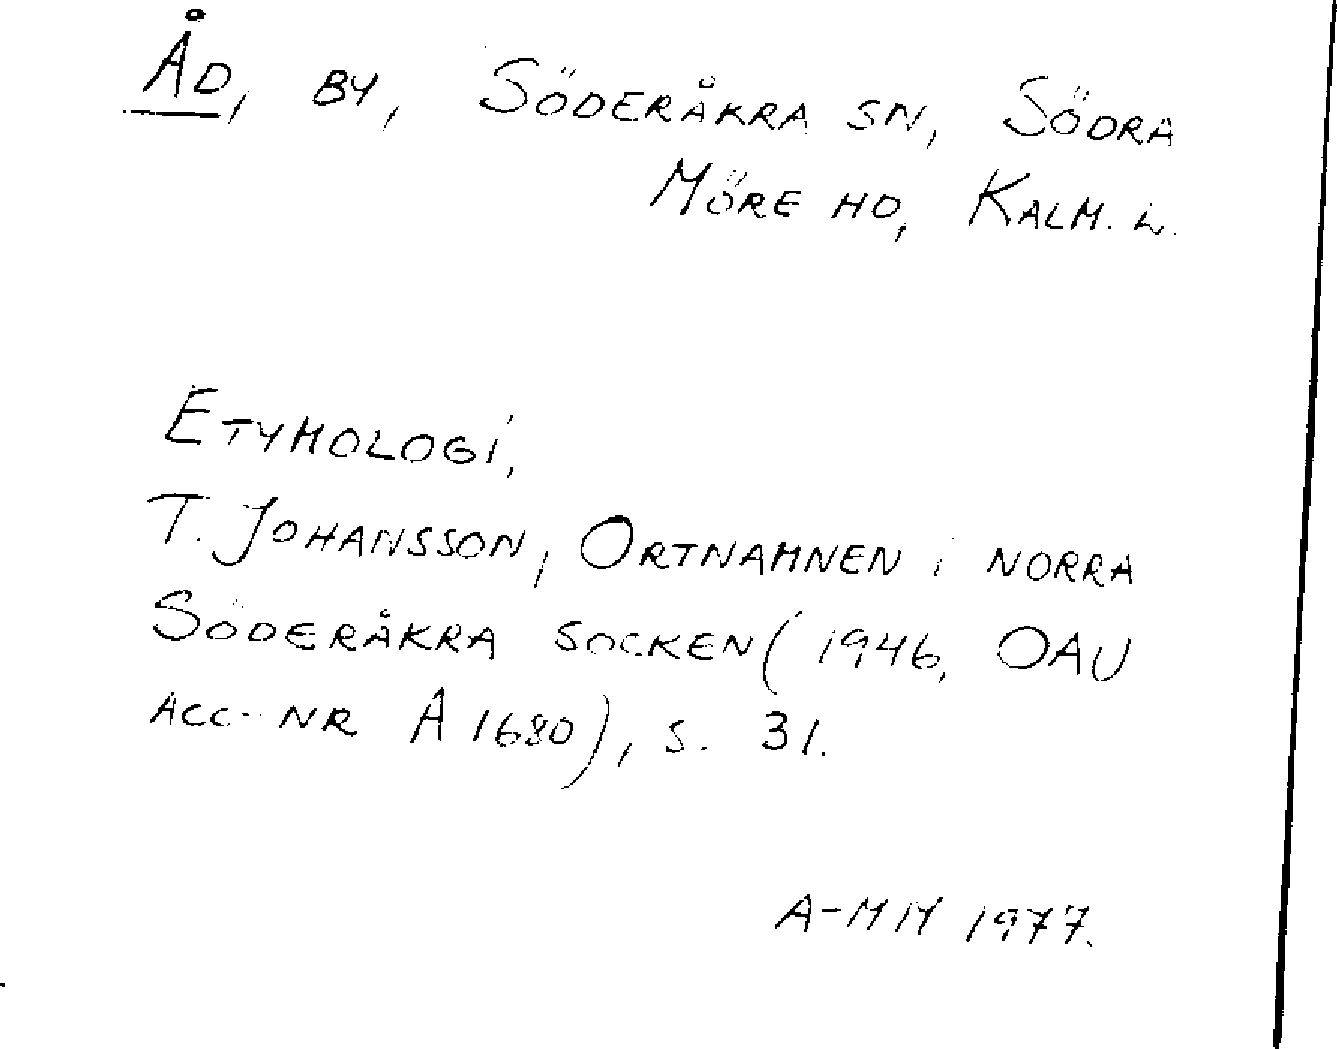 ÅD, BY, SÖDERÅKRA SN, SÖDRA
MÖRE HD, KALM. L.
ETYMOLOGI,
T. JOHANSSON, ORTNAMNEN I NORRA
SÖDERÅKRA SOCKEN (1946, OAU
ACC-NR A 1680), S. 31.
A-MM 1977.